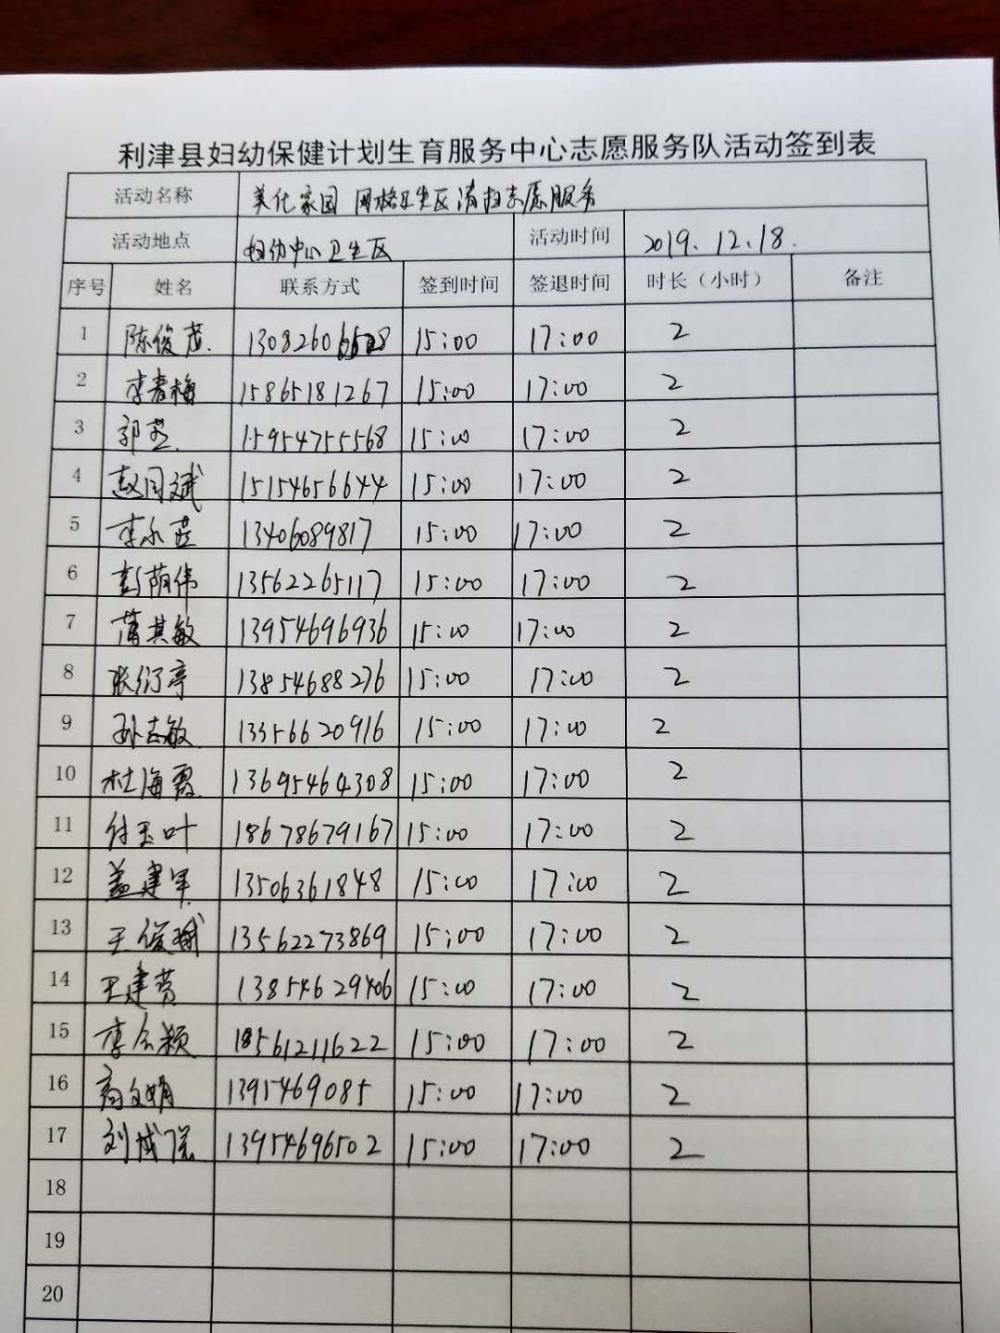 利津县妇幼保健计划生育服务中心志愿服务队活动签到表
活动名称 美化家园 网格卫生区清扫志愿服务
活动地点 妇幼中心卫生区 活动时间 2019.12.18.
序号 姓名 联系方式 签到时间 签退时间 时长（小时） 备注
1 陈俊 15:00 17:00 2
2 李春梅 15865181267 15:00 17:00 2
3 郭燕 15954755568 15:00 17:00 2
4 赵同斌 15154656644 15:00 17:00 2
5 李永 13406089817 15:00 17:00 2
6 彭荫伟 13562265117 15:00 17:00 2
7 蒲其敏 13954696936 15:00 17:00 2
8 张衍亭 13854688276 15:00 17:00 2
9 孙志敏 13356620916 15:00 17:00 2
10 杜海霞 13695464308 15:00 17:00 2
11 付玉叶 18678679167 15:00 17:00 2
12 盖建军 13506361848 15:00 17:00 2
13 王俊斌 13562273869 15:00 17:00 2
14 王建芳 13854629406 15:00 17:00 2
15 李颖 18561211622 15:00 17:00 2
16 高文娟 1395469085 15:00 17:00 2
17 刘 13954696502 15:00 17:00 2
18
19
20